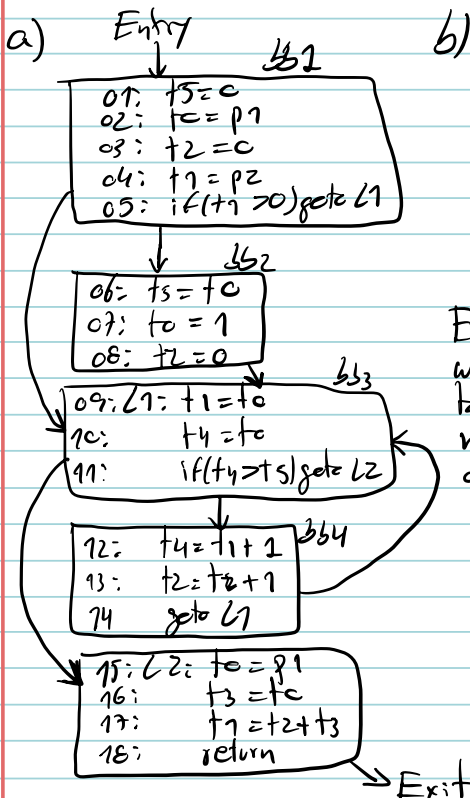 a) Entry b)
bb1
01: t5=0
02: t0=p1
03: t2=0
04: t1=p2
05: if(t1>0)goto L1
bb2
06: t5=t0
07: t0=1
08: t2=0
bb3
09: L1: t1=t0
10: t4=t0
11: if(t4>t5)goto L2
bb4
12: t4=t1+1
13: t2=t2+1
14 goto L1
15: L2: t0=p1
16: t3=t0
17: t1=t2+t3
18: return
Exit